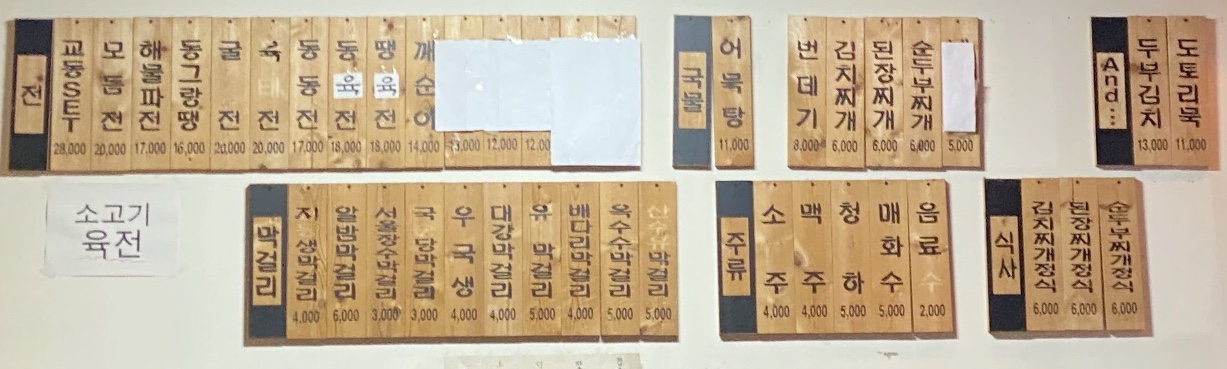 전
교동SET 28,000
모듬전 20,000
해물파전 17,000
동그랑땡 16,000
굴전 20,000
육전 20,000
동동전 17,000
동육전 18,000
땡육전 18,000
깨순이 14,000
13,000
12,000
12,00
국물
어묵탕 11,000
번데기 8,000
김치찌개 6,000
된장찌개 6,000
순두부찌개 6,000
5,000
And...
두부김치 13,000
도토리묵 11,000
소고기
육전
막걸리
지 생막걸리 4,000
알밤막걸리 6,000
서울장수막걸리 3,000
국 당막걸리 3,000
우국생 4,000
대강막걸리 4,000
유 막걸리 5,000
배다리막걸리 4,000
옥수수막걸리 5,000
산수유막걸리 5,000
주류
소주 4,000
맥주 4,000
청하 5,000
매화수 5,000
음료수 2,000
식사
김치찌개정식 6,000
된장찌개정식 6,000
순두부찌개정식 6,000